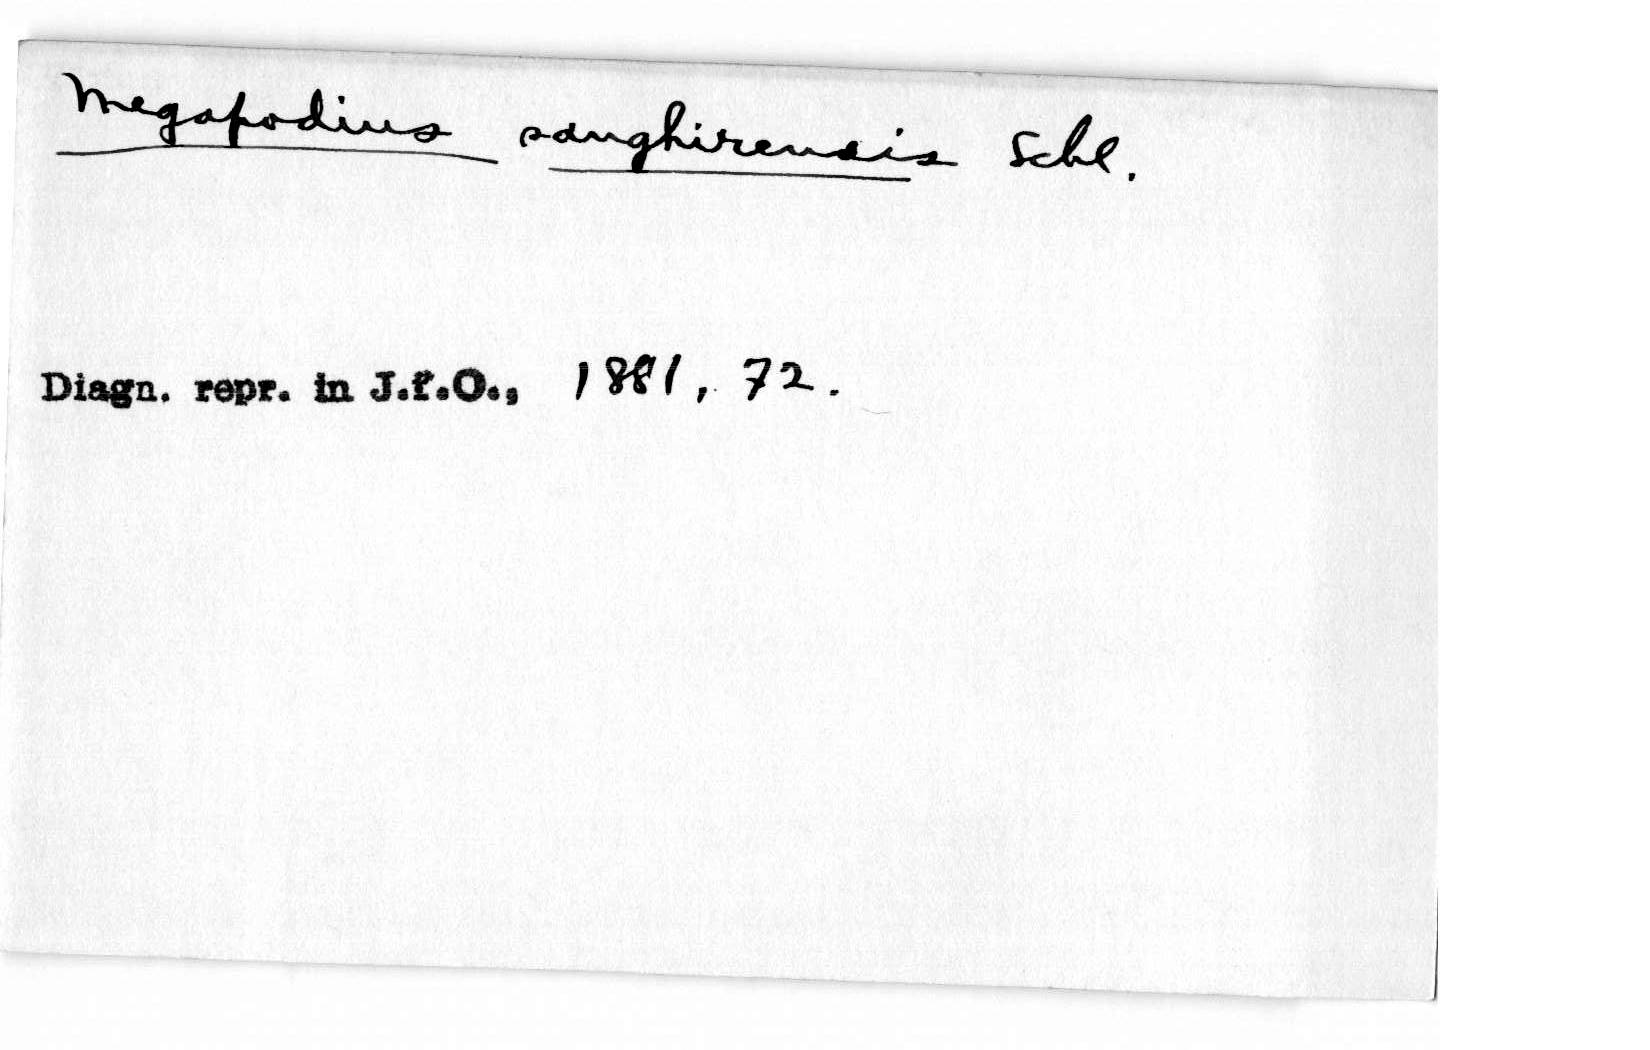 Megapodius sanghirensis Schl.
Diagn. repr. in J.f.O., 1881, 72.